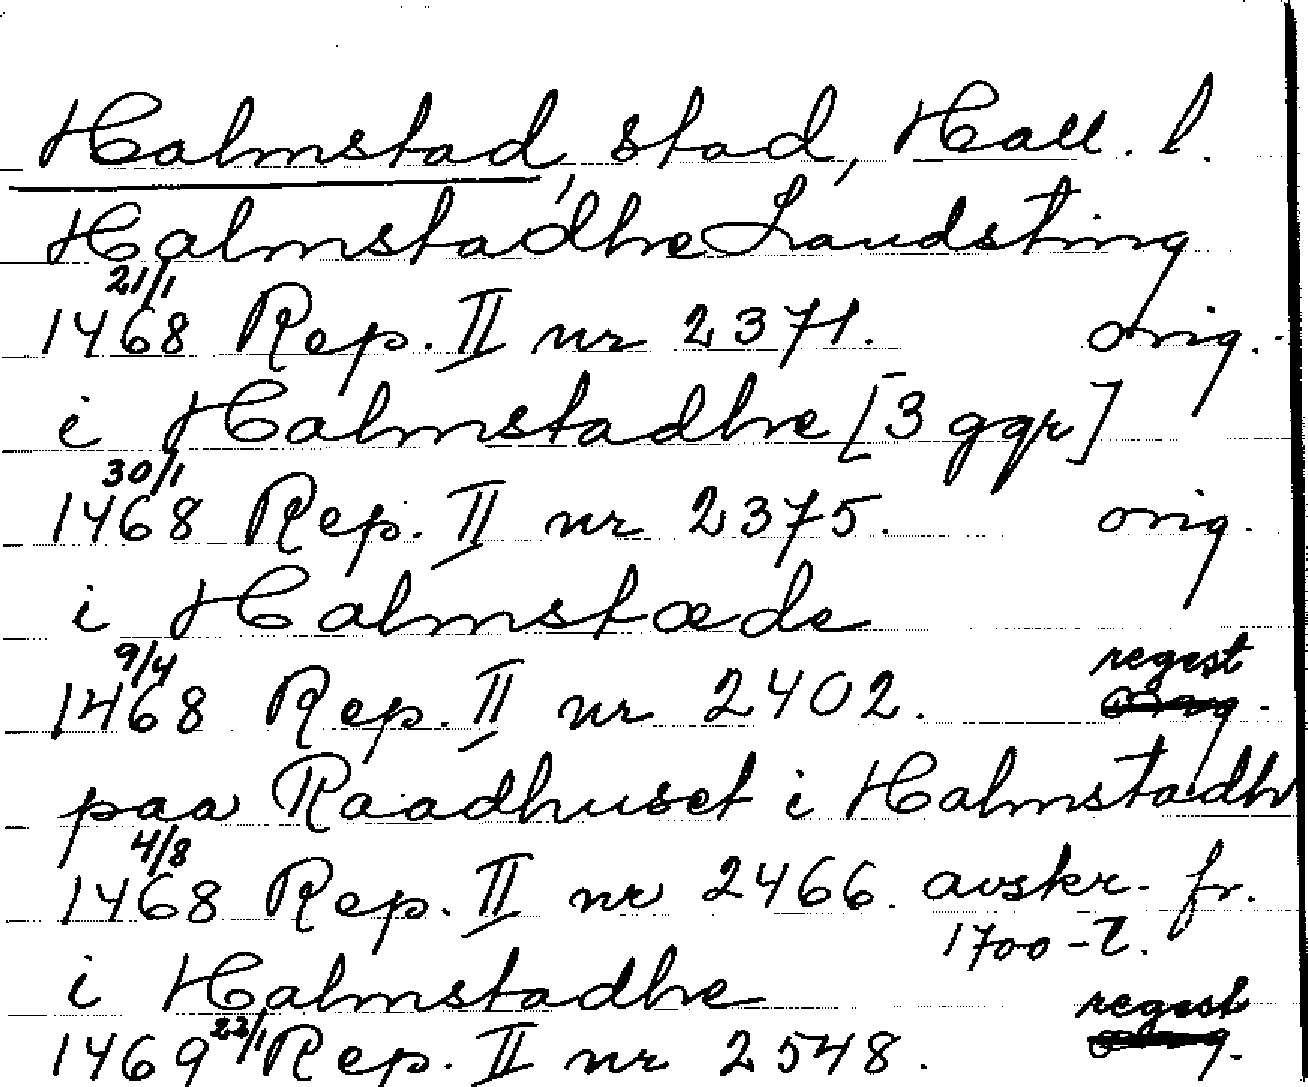 Halmstad, stad, Hall. l.
Halmstadhe Landsting
1468 21/1 Rep. II nr 2371. orig.
i Halmstadhe [3 ggr]
1468 30/1 Rep. II nr 2375. orig.
i Halmstæde
1468 9/4 Rep. II nr 2402. regest
orig.
paa Raadhuset i Halmstadh
1468 4/8 Rep. II nr 2466. avskr. fr.
1700-t.
i Halmstadhe
1469 22/1 Rep. II nr 2548. regest
orig.